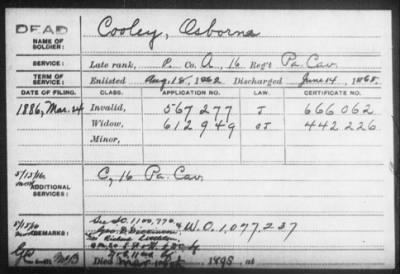 DEAD
NAME OF SOLDIER:
Cooley, Osborna
SERVICE:
Late rank, P. Co. A, 16 Reg't Pa. Cav.
TERM OF SERVICE:
Enlisted Aug. 18, 1862 Discharged June 14, 1865.
DATE OF FILING. CLASS. APPLICATION NO. LAW. CERTIFICATE NO.
1886, Mar. 24 Invalid, 567277 J 666062
Widow, 612949 442226
Minor,
ADDITIONAL SERVICES:
C, 16 Pa. Cav.
REMARKS:
See S.C. 1100,770 W.O. 1,077,237
Geo. B. Dickinson
Died 1898, at